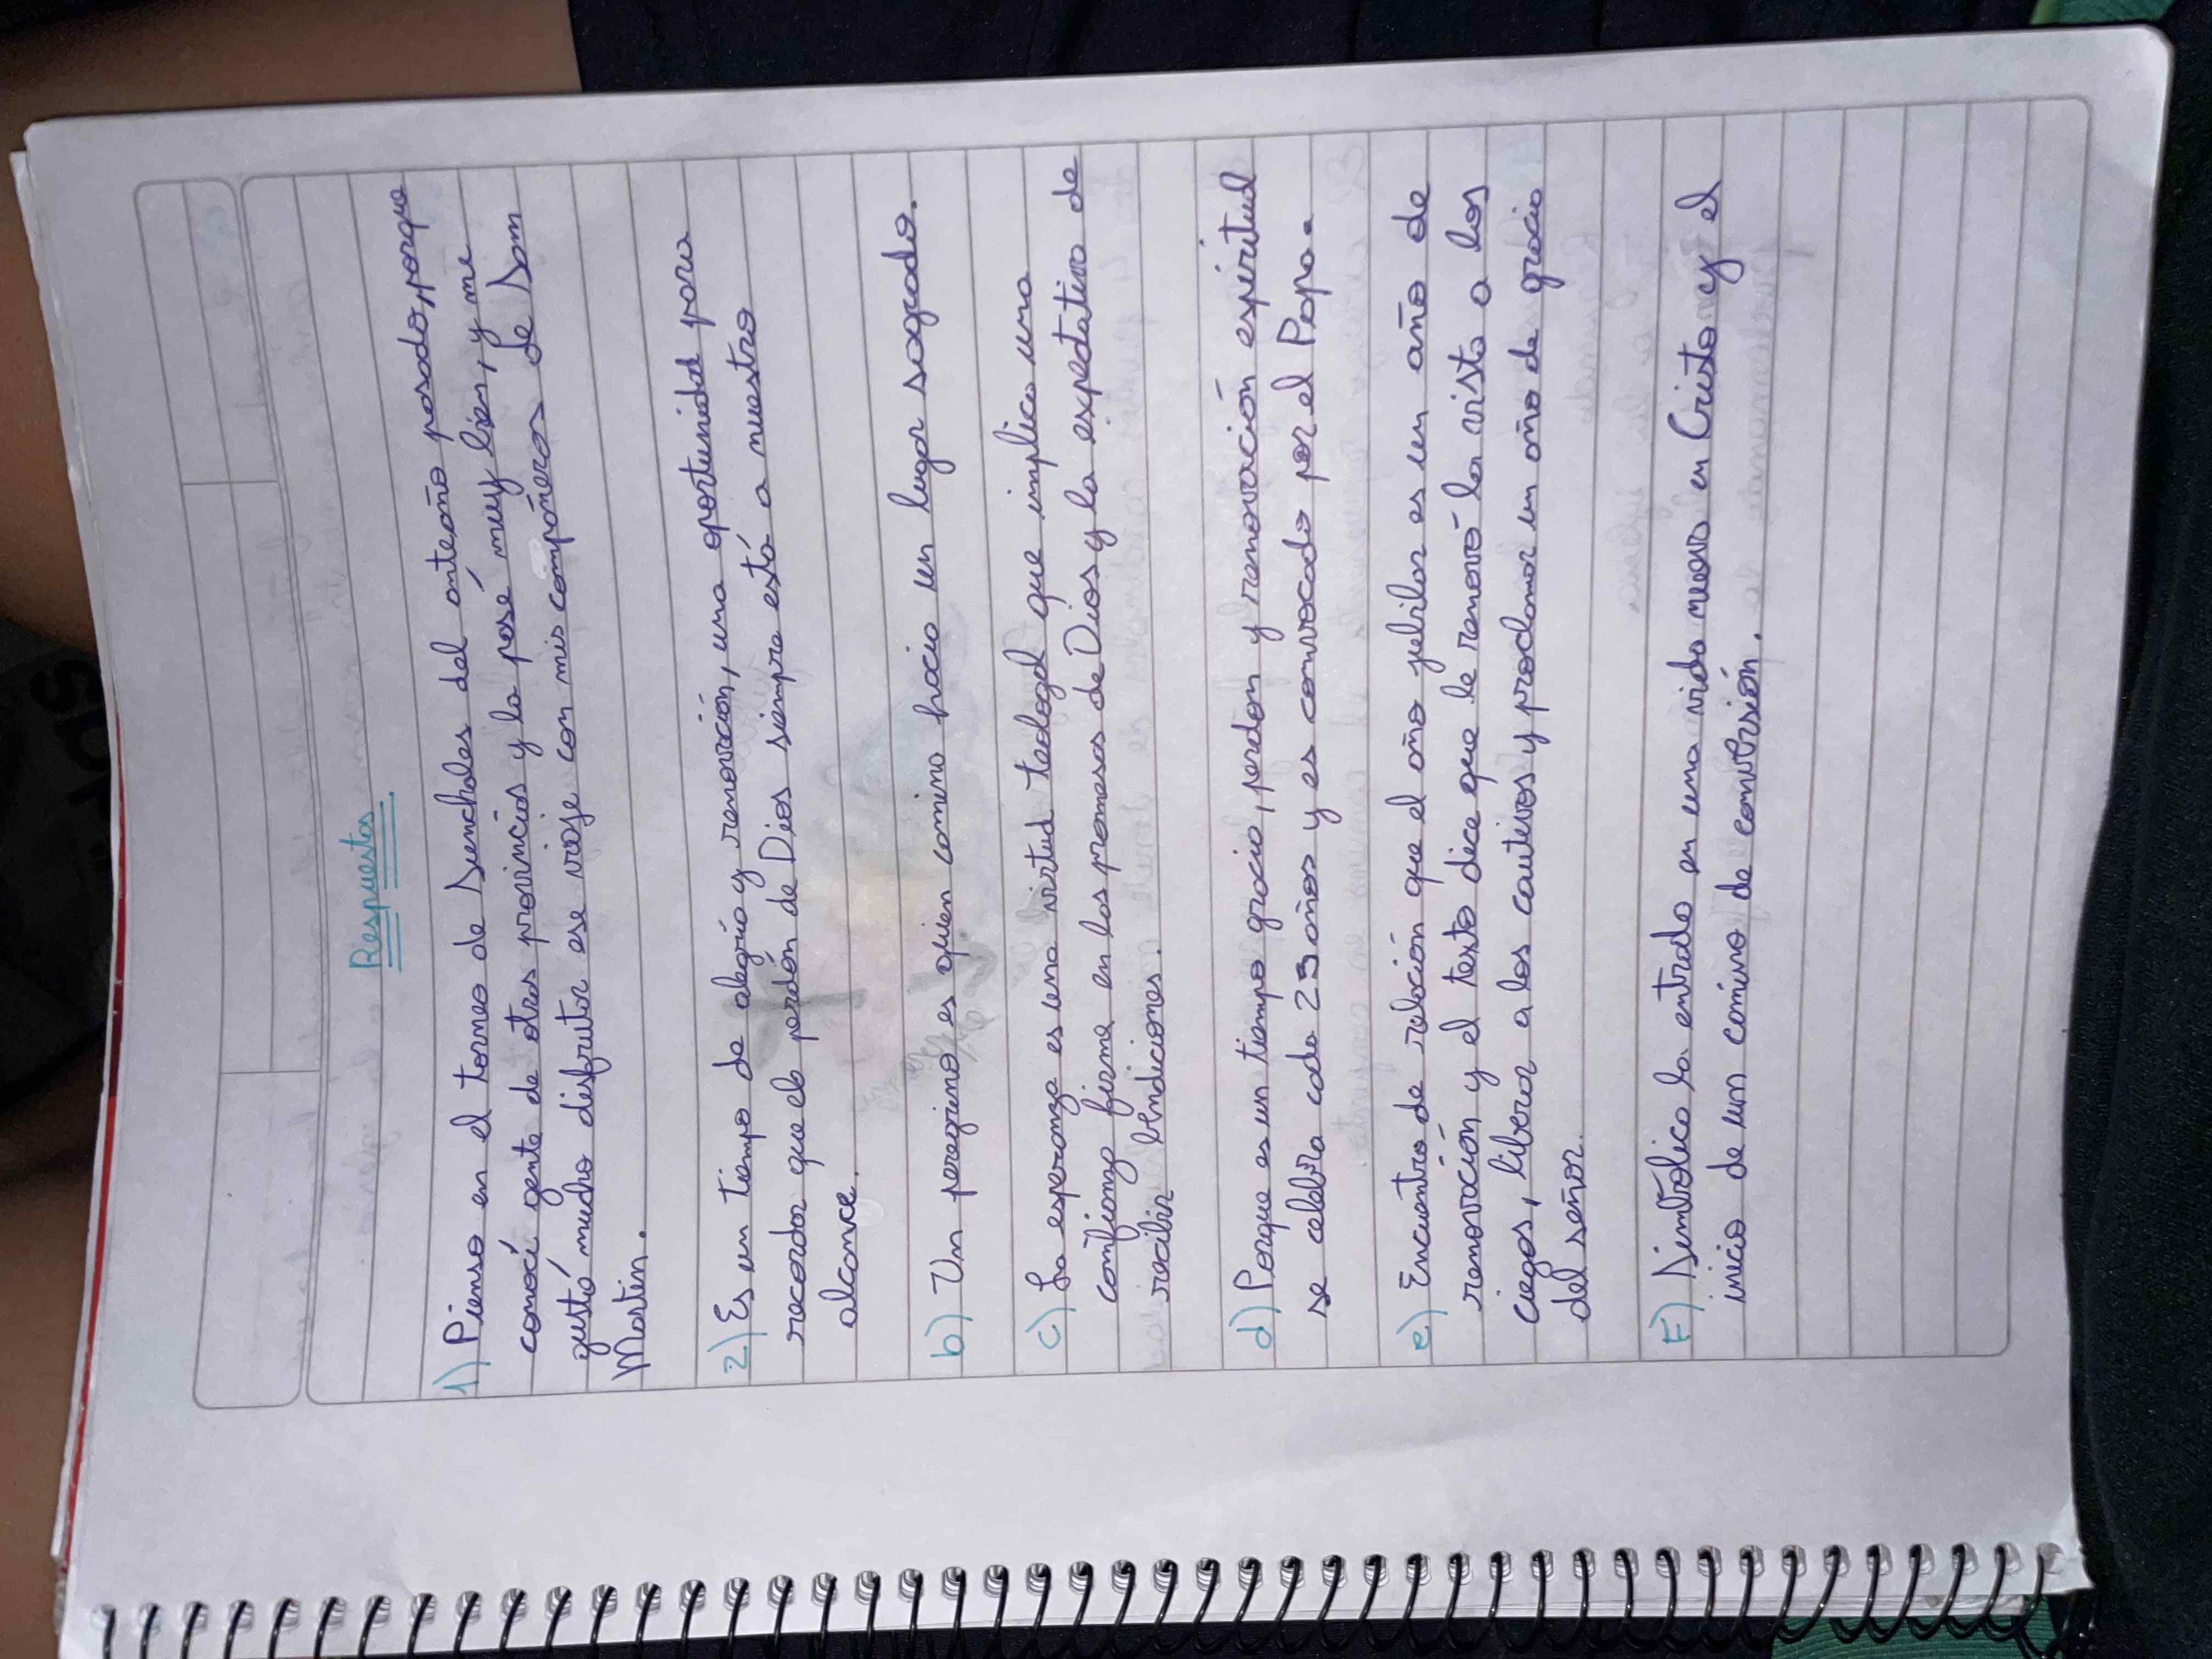 Respuestas
1) Pienso en el torneo de Sunchales del anteaño pasado, porque
conocí gente de otras provincias y la pasé muy bien, y me
gustó mucho disfrutar ese viaje con mis compañeros de San
Martin.
2) Es un tiempo de alegría y renovación, una oportunidad para
recordar que el perdón de Dios siempre está a nuestro
alcance.
b) Un peregrino es quien camina hacia un lugar sagrado.
c) La esperanza es una virtud teologal que implica una
confianza firme en las promesas de Dios y la expectativa de
recibir bendiciones.
d) Porque es un tiempo gracia, perdon y renovación espiritual
se celebra cada 25 años y es convocado por el Papa.
e) Encuentro de relación que el año jubilar es un año de
renovación y el texto dice que le renovó la vista a los
ciegos, liberar a los cautivos y proclamar un año de gracia
del señor.
F) Simbolica la entrada en una vida nueva en Cristo y el
inicio de un camino de conversión.